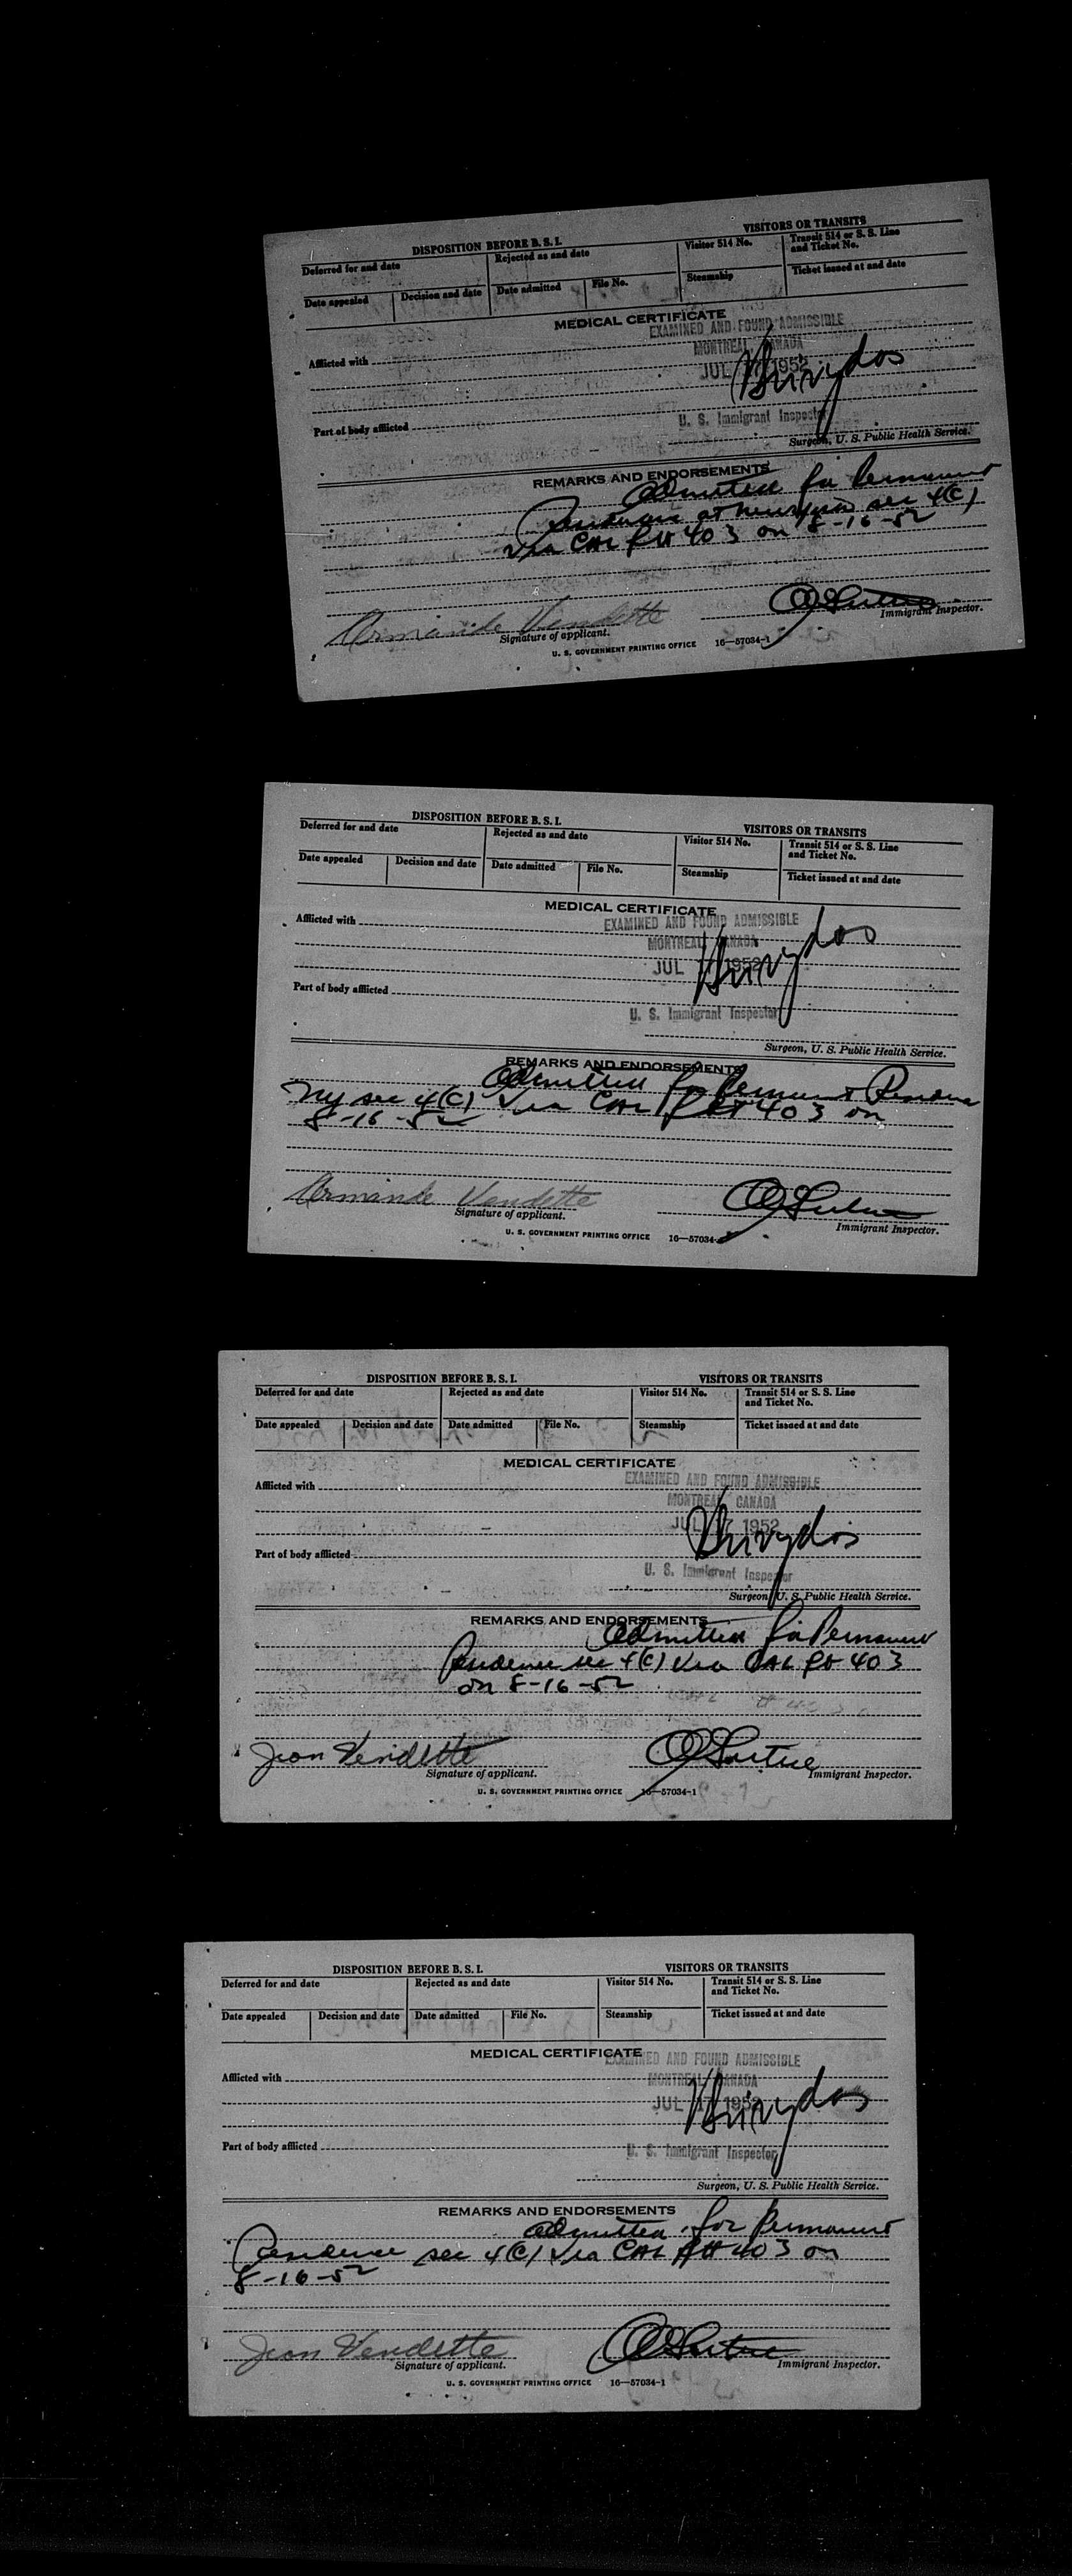 DISPOSITION BEFORE B. S. I. VISITORS OR TRANSITS
Deferred for and date Rejected as and date Visitor 514 No. Transit 514 or S. S. Line and Ticket No.
Date appealed Decision and date Date admitted File No. Steamship Ticket issued at and date
MEDICAL CERTIFICATE
EXAMINED AND FOUND ADMISSIBLE
Afflicted with
MONTREAL, CANADA
JUL 17 1952
Part of body afflicted
U. S. Immigrant Inspector
Surgeon, U. S. Public Health Service.
REMARKS AND ENDORSEMENTS
Admitted for Permanent
Residence at sec 4(c)
via CAL flt 403 on 8-16-52
Armande Vendette
Signature of applicant.
Immigrant Inspector.
U. S. GOVERNMENT PRINTING OFFICE 16—57034-1
DISPOSITION BEFORE B. S. I. VISITORS OR TRANSITS
Deferred for and date Rejected as and date Visitor 514 No. Transit 514 or S. S. Line and Ticket No.
Date appealed Decision and date Date admitted File No. Steamship Ticket issued at and date
MEDICAL CERTIFICATE
Afflicted with
EXAMINED AND FOUND ADMISSIBLE
MONTREAL, CANADA
JUL 17 1952
Part of body afflicted
U. S. Immigrant Inspector
Surgeon, U. S. Public Health Service.
REMARKS AND ENDORSEMENTS
Admitted for Permanent Residence
NY sec 4(C) Via CAL flt 403 on
8-16-52
Armande Vendette
Signature of applicant.
Immigrant Inspector.
U. S. GOVERNMENT PRINTING OFFICE 16—57034-1
DISPOSITION BEFORE B. S. I. VISITORS OR TRANSITS
Deferred for and date Rejected as and date Visitor 514 No. Transit 514 or S. S. Line and Ticket No.
Date appealed Decision and date Date admitted File No. Steamship Ticket issued at and date
MEDICAL CERTIFICATE
EXAMINED AND FOUND ADMISSIBLE
Afflicted with
MONTREAL, CANADA
JUL 17 1952
Part of body afflicted
U. S. Immigrant Inspector
Surgeon, U. S. Public Health Service.
REMARKS AND ENDORSEMENTS
Admitted for Permanent
Residence sec 4(c) Via CAL flt 403
on 8-16-52
Jean Vendette
Signature of applicant.
Immigrant Inspector.
U. S. GOVERNMENT PRINTING OFFICE 16—57034-1
DISPOSITION BEFORE B. S. I. VISITORS OR TRANSITS
Deferred for and date Rejected as and date Visitor 514 No. Transit 514 or S. S. Line and Ticket No.
Date appealed Decision and date Date admitted File No. Steamship Ticket issued at and date
MEDICAL CERTIFICATE
EXAMINED AND FOUND ADMISSIBLE
Afflicted with
MONTREAL, CANADA
JUL 17 1952
Part of body afflicted
U. S. Immigrant Inspector
Surgeon, U. S. Public Health Service.
REMARKS AND ENDORSEMENTS
Admitted for Permanent
Residence sec 4(C) Via CAL flt 403 on
8-16-52
Jean Vendette
Signature of applicant.
Immigrant Inspector.
U. S. GOVERNMENT PRINTING OFFICE 16—57034-1